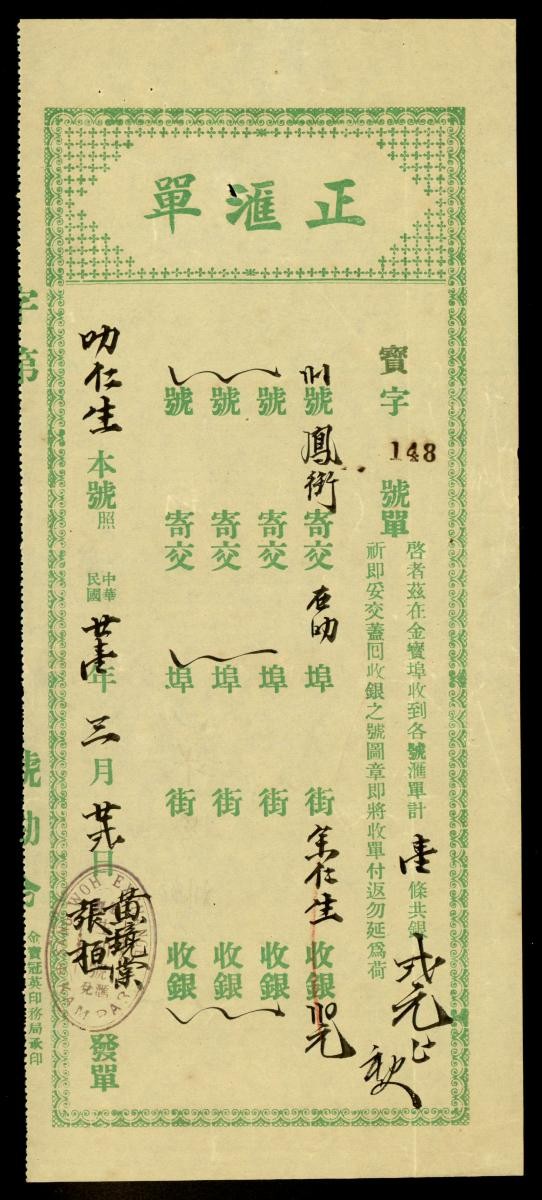 正滙單
寶字 148 號單
啓者茲在金寶埠收到各號滙單計壹條共銀
元
祈即妥交蓋囘收銀之號圖章即將收單付返勿延爲荷
號 鳳街 寄交 埠 街 仁生 收銀 元
號 寄交 埠 街 收銀
號 寄交 埠 街 收銀
號 寄交 埠 街 收銀
叻仁生 本號照 中華民國 廿壹年 三月 日 張桓 發單
滙兌
KAMPAR
字第 號
金寶冠英印務局承印